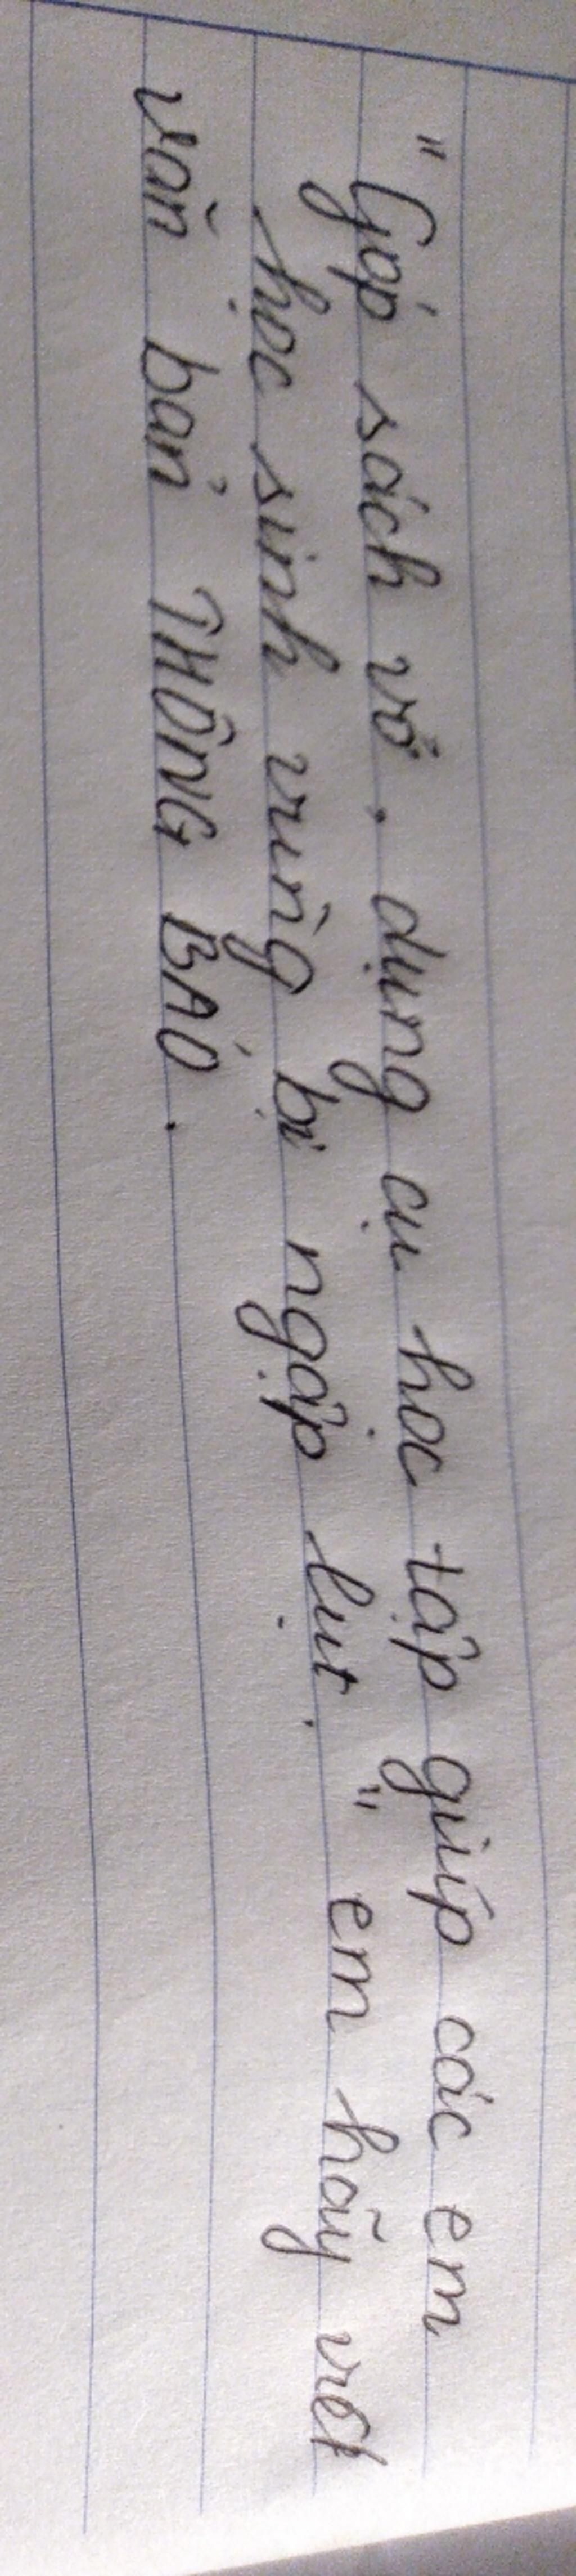 " Góp sách vở, dụng cụ học tập giúp các em
học sinh vùng bị ngập lụt. " em hãy viết
văn bản THÔNG BÁO.